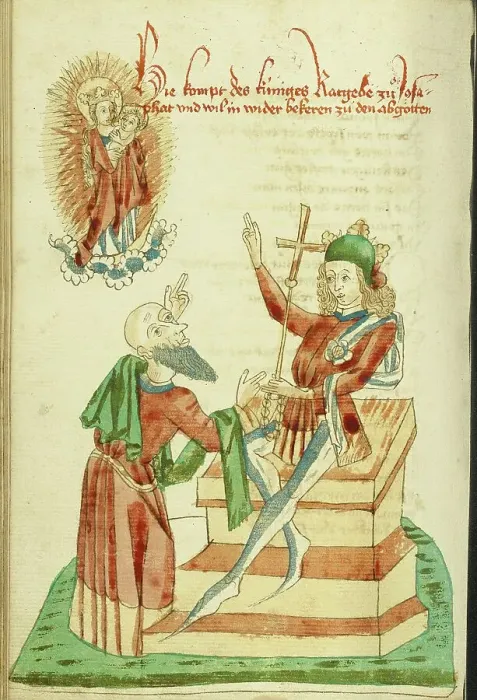 Hie kompt des küniges Ratgebe zü Josa-
phat vnd wil in wider bekeren zü den abgotten